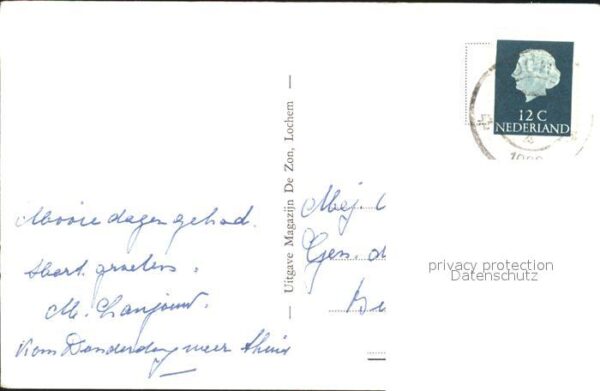 12 C
NEDERLAND
Uitgave Magazijn De Zon, Lochem
Mooie dagen gehad.
Hart. groeten.
M.
Kom Donderdag weer thuis
Mej.
Gen. d
privacy protection
Datenschutz